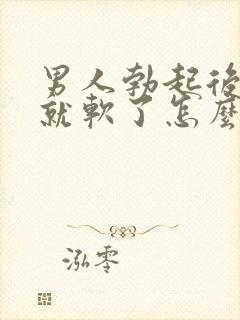 男人勃起後
就軟了怎麼
泓零